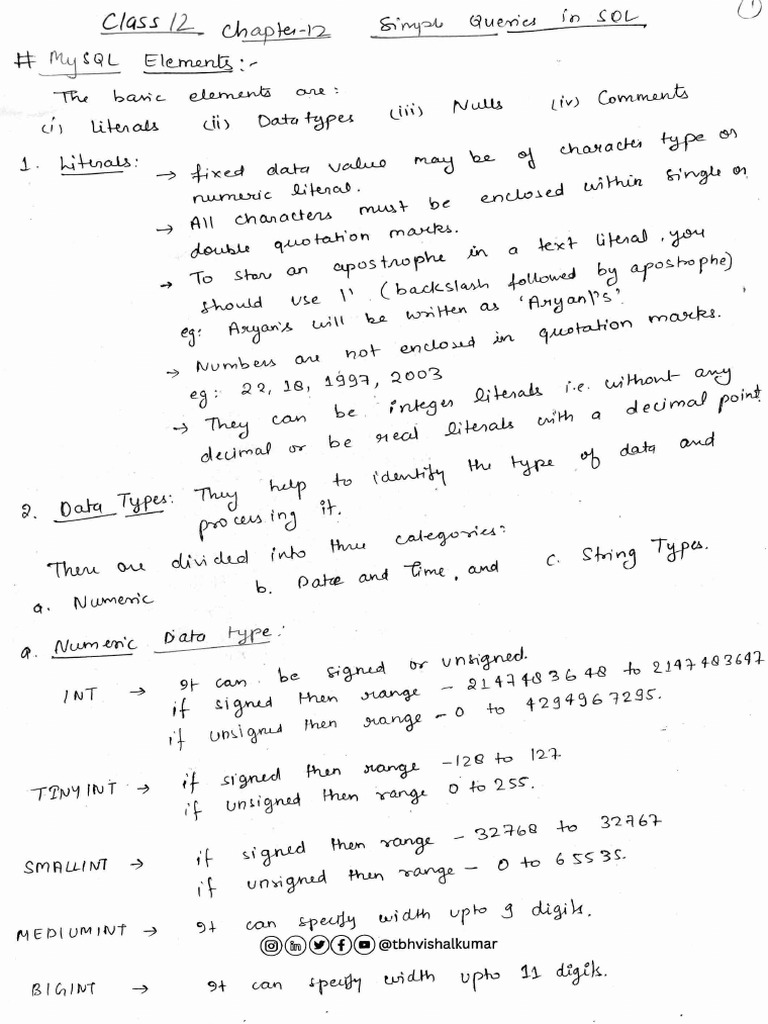 Class 12 Chapter-12 Simple Queries in SQL 1
# MySQL Elements:-
The basic elements are:
(i) Literals (ii) Data types (iii) Nulls (iv) Comments
1. Literals: → fixed data value may be of character type or
numeric literal.
→ All characters must be enclosed within single or
double quotation marks.
→ To store an apostrophe in a text literal, you
should use \' (backslash followed by apostrophe)
eg: Aryan's will be written as 'Aryan\'s'.
→ Numbers are not enclosed in quotation marks.
eg: 22, 18, 1997, 2003
→ They can be integer literals i.e. without any
decimal or be real literals with a decimal point.
2. Data Types: They help to identify the type of data and
processing it.
There are divided into three categories:
a. Numeric b. Date and Time, and c. String Types.
a. Numeric Data type:
INT → It can be signed or unsigned.
if signed then range - 2147483648 to 2147483647
if unsigned then range - 0 to 4294967295.
TINYINT → if signed then range -128 to 127
if unsigned then range 0 to 255.
SMALLINT → if signed then range - 32768 to 32767
if unsigned then range - 0 to 65535.
MEDIUMINT → It can specify width upto 9 digits.
@tbhvishalkumar
BIGINT → It can specify width upto 11 digits.